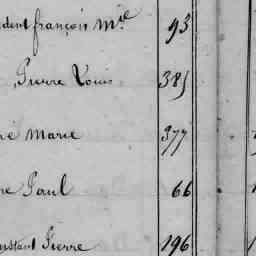 dent françois Mie 93
Pierre Louis 385
né Marie 377
re Paul 66
nstant Pierre 196